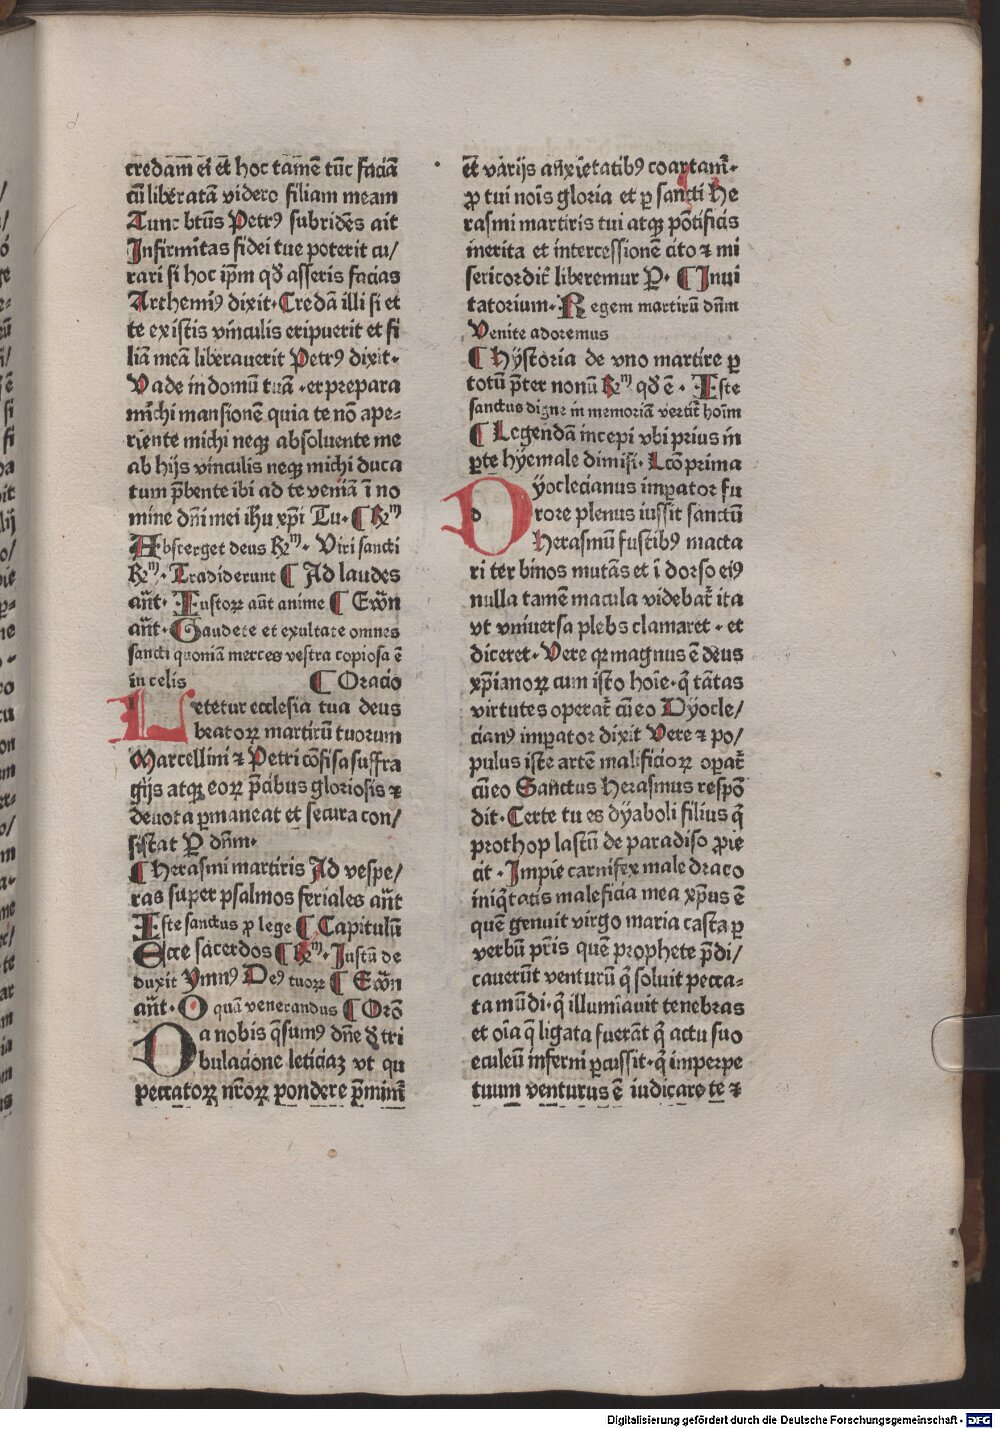 credam̄ ei et̄ hoc tamē tūc faciā
cū liberatā videro filiam meam
Tunc btūs Petrꝰ subridēs ait
Infirmitas fidei tue poterit cu/
rari si hoc ip̄m qđ asseris facias
Arthemiꝰ dixit· Credā illi si et
te existis vinculis eripuerit et fi
liā meā liberauerit Petrꝰ dixit·
Vade in domū tuā · et prepara
michi mansionē quia te nō ape⸗
riente michi neqꝫ absoluente me
ab hijs vinculis neqꝫ michi duca
tum p̄bente ibi ad te veniā ī no
mine dn̄i mei ih̄u xp̄i Tu· ¶ Rm̄
Absterget deus Rm̄· Viri sancti
Rm̄· Tradiderunt ¶ Ad laudes
an̄t· Iustoꝝ an̄t anime ¶ Ewn̄
an̄t· Gaudete et exultate omnes
sancti quoniā merces vestra copiosa ē
in celis ¶ Oracio
Letetur ecclesia tua deus
beatoꝝ martirū tuorum
Marcellini ⁊ Petri cōfisa suffra
gijs atqꝫ eoꝝ p̄cibus gloriosis ⁊
deuota ꝑmaneat et secura con/
sistat Ꝑ dn̄m·
¶ Herasmi martiris Ad vespe/
ras super psalmos feriales an̄t
Iste sanctus ꝓ lege ¶ Capitulū
Ecce sacerdos ¶ Rm̄· Iustū de
duxit Ymnꝰ Deꝰ tuoꝝ ¶ Ewn̄
an̄t· O quā venerandus ¶ Orō
Da nobis q̄sumꝰ dn̄e đ tri
bulacione leticiaꝫ vt qu
peccatoꝝ nr̄oꝝ pondere p̄mimr̄
et̄ varijs anxietatibꝰ coartamr̄·
ꝓ tui nōis gloria et ꝑ sancti He
rasmi martiris tui atqꝫ pōtificis
merita et intercessionē cito ⁊ mi
sericordit̄ liberemur Ꝑ· ¶ Inui
tatorium· Regem martirū dn̄m
Venite adoremus
¶ Hystoria de vno martire ꝑ
totū p̄ter nonū Rm̄ qđ ē · Iste
sanctus digne in memoriā vertit̄ hoīm
¶ Legendā incepi vbi prius in
ꝑte hyemale dimisi· Lcō prima
Dyoclecianus imꝑator fu
rore plenus iussit sanctū
Herasmū fustibꝰ macta
ri ter binos mutās et ī dorso eiꝰ
nulla tamē macula videbat̄ ita
vt vniuersa plebs clamaret · et
diceret· Vere qꝛ magnus ē deus
xp̄ianoꝝ cum isto hoīe· q̄ tātas
virtutes operat̄ cū eo Dyocle/
cianꝰ imꝑator dixit Vere ⁊ po/
pulus iste artē malificioꝝ oꝑat̄
cū eo Sanctus Herasmus respō
dit· Certe tu es dyaboli filius q̄
prothoplastū de paradiso ꝓie
cit· Impie carnifex male draco
iniq̄tatis maleficia mea xp̄us ē
quē genuit virgo maria casta ꝑ
verbū pr̄is quē prophete p̄di/
cauerūt venturū q̄ soluit pecca⸗
ta mūdi· q̄ illumiauit tenebras
et oīa q̄ ligata fuerāt q̄ actu suo
eculeū inferni ꝑcussit· q̄ imperpe
tuum venturus ē iudicare te ⁊
Digitalisierung gefördert durch die Deutsche Forschungsgemeinschaft - DFG